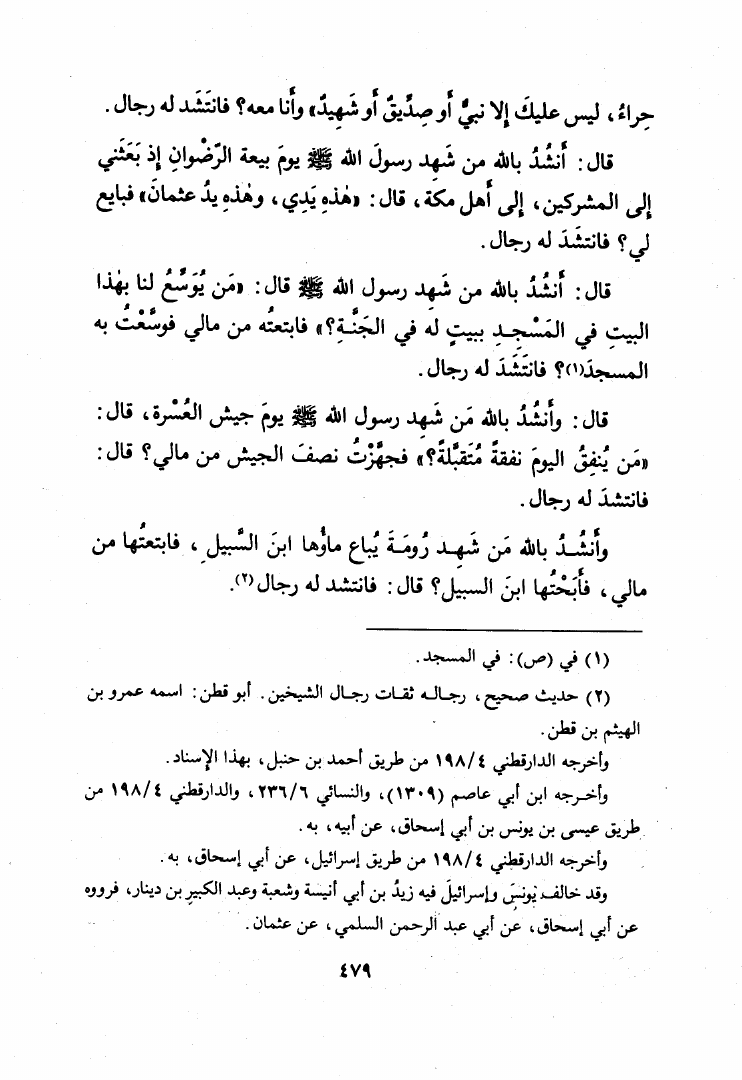 حِراءُ، ليس عليكَ إلا نبيٌّ أَو صِدِّيقٌ أَو شَهِيدٌ» وأَنا معه؟ فانتَشَد له رجال.
قال: أَنشُدُ بالله من شَهِد رسولَ الله ﷺ يومَ بيعة الرِّضْوانِ إذ بَعَثَني
إلى المشركين، إلى أَهل مكة، قال: «هٰذهِ يَدِي، وهٰذهِ يدُ عثمانَ» فبايع
لي؟ فانتشَدَ له رجال.
قال: أَنشُدُ بالله من شَهِد رسول الله ﷺ قال: «مَن يُوَسِّعُ لنا بهٰذا
البيتِ في المَسْجِدِ ببيتٍ له في الجَنَّةِ؟» فابتعتُه من مالي فوسَّعْتُ به
المسجدَ(١)؟ فانتَشَدَ له رجال.
قال: وأَنشُدُ بالله مَن شَهِد رسول الله ﷺ يومَ جيش العُسْرة، قال:
«مَن يُنفِقُ اليومَ نفقةً مُتَقبَّلةً؟» فجهَّزْتُ نصفَ الجيش من مالي؟ قال:
فانتشدَ له رجال.
وأَنشُدُ بالله مَن شَهِد رُومَةَ يُباع ماؤُها ابنَ السَّبيل، فابتعتُها من
مالي، فأَبَحْتُها ابنَ السبيل؟ قال: فانتشد له رجال(٢).
(١) في (ص): في المسجد.
(٢) حديث صحيح، رجاله ثقات رجال الشيخين. أبو قطن: اسمه عمرو بن
الهيثم بن قطن.
وأخرجه الدارقطني ١٩٨/٤ من طريق أحمد بن حنبل، بهذا الإسناد.
وأخرجه ابن أبي عاصم (١٣٠٩)، والنسائي ٢٣٦/٦، والدارقطني ١٩٨/٤ من
طريق عيسى بن يونس بن أبي إسحاق، عن أبيه، به.
وأخرجه الدارقطني ١٩٨/٤ من طريق إسرائيل، عن أبي إسحاق، به.
وقد خالف يُونسَ وإسرائيلَ فيه زيدُ بن أبي أنيسة وشعبة وعبد الكبير بن دينار، فرووه
عن أبي إسحاق، عن أبي عبد الرحمن السلمي، عن عثمان.
٤٧٩